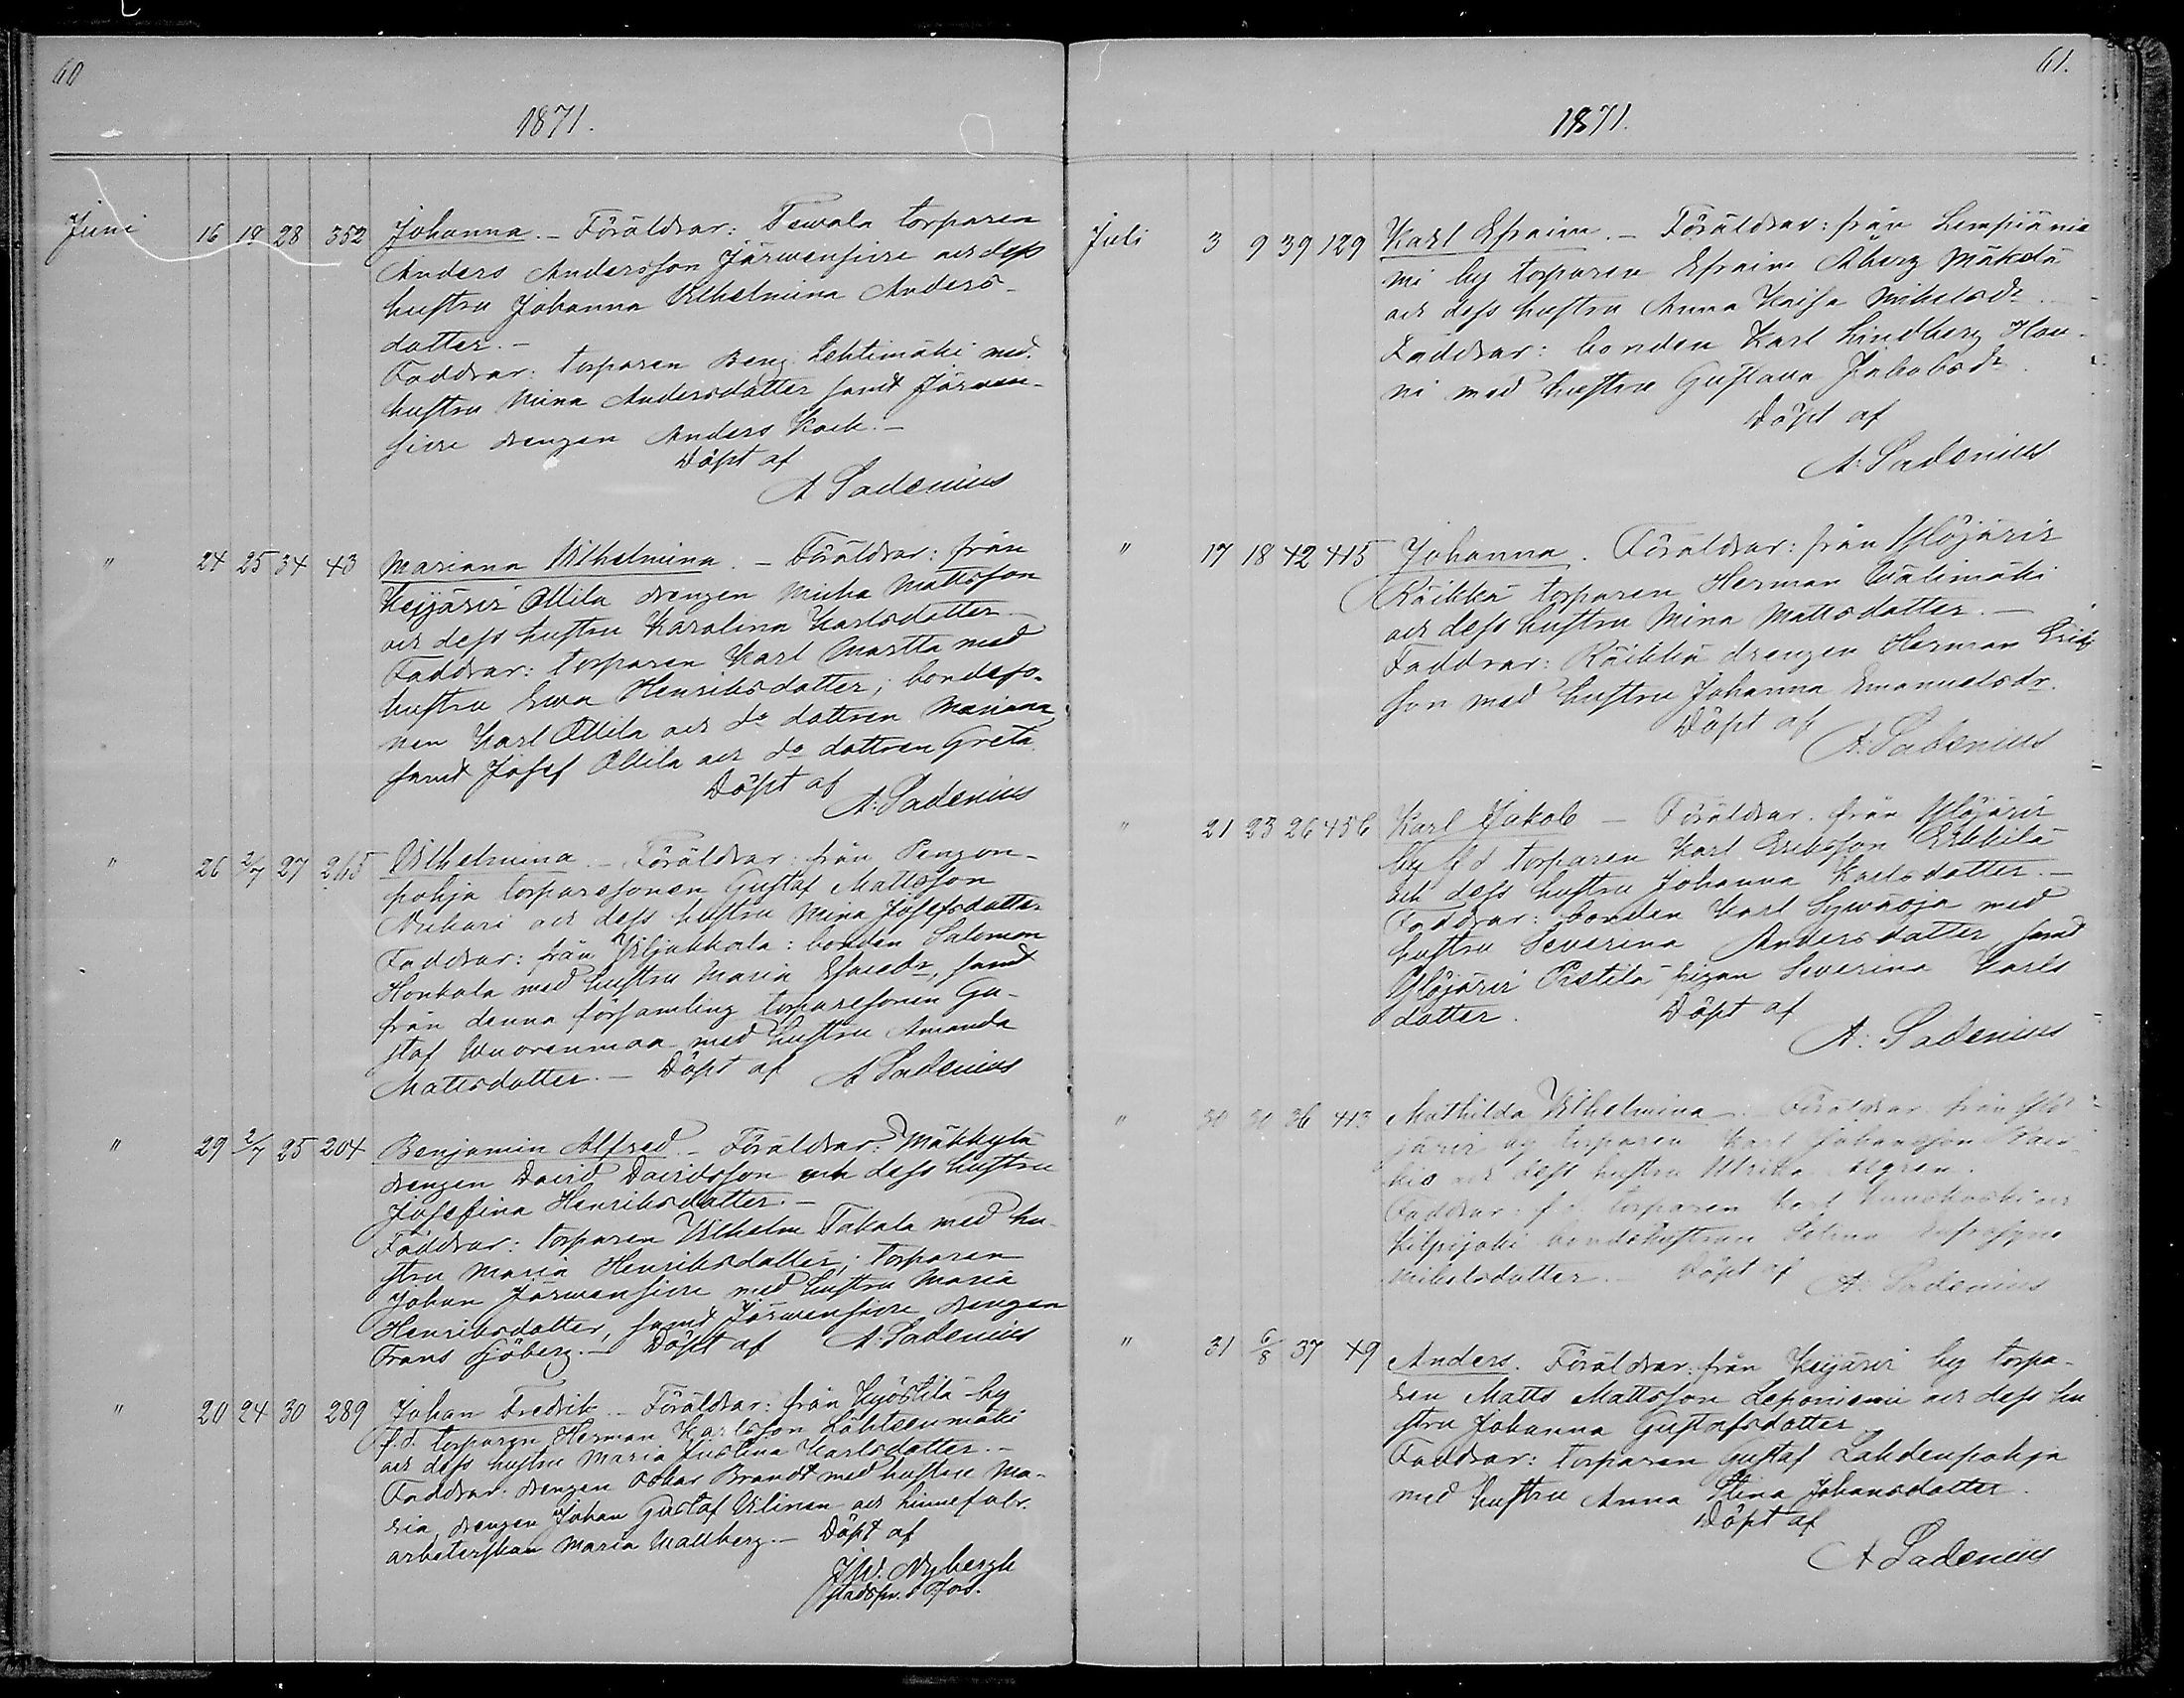 60
1871.
Juni 16 18 28 352 Johanna. - Föräldrar: Tewala torparen
Anders Andersson Järwensivu och dess
hustru Johanna Vilhelmina Anders-
dotter. -
Faddrar: torparen Benj. Lehtimäki med
hustru Mina Andersdotter samt Järwen-
sivu drengen Anders Kock. -
Döpt af
A Sadenius
" 24 25 34 43 Mariana Vilhelmina. - Föräldrar: från
Keijäris Ollila drengen Micke Mattsson
och dess hustru Karolina Karlsdotter
Faddrar: torparen Karl Martta med
hustru Ewa Henriksdotter; bondeso-
nen Karl Ollila och do dottren Mariana,
samt Josef Ollila och do dottren Greta.
Döpt af
A. Sadenius
" 26 2/7 27 265 Vilhelmina. - Föräldrar: från Pengon-
pohja torparesonen Gustaf Mattsson
och dess hustru Mina Josefsdotter
Faddrar: från Viljakkala: bonden Salomon
Honkala med hustru Maria Esaiedr, samt
från denna församling torparesonen Gu-
staf Wuorenmaa med hustru Amanda
Mattsdotter. - Döpt af A Sadenius
" 29 2/7 25 204 Benjamin Alfred. - Föräldrar: Mäkkylä
drengen David Davidsson och dess hustru
Josefina Henriksdotter. -
Faddrar: torparen Vilhelm Takala med hu-
stru Maria Henriksdotter; torparen
Johan Järwensivu med hustru Maria
Henriksdotter, samt Järwensivu drengen
Frans Sjöberg. - Döpt af A. Sadenius
" 20 24 30 289 Johan Fredrik. - Föräldrar: från Kyöstilä by
f.d. torparen Herman Karlsson Lähteenmäki
och dess hustru Maria Justina Karlsdotter. -
Faddrar: drengen Oskar Brandt med hustru Ma-
ria, drengen Johan Gustaf Vilinen och linnefabr.
arbeterskan Maria Wallberg. - Döpt af
J.W. Nybergh
61.
1871.
Juli 3 9 39 129 Karl Efraim. - Föräldrar: från Lempiänie
mi by torparen Efraim Åberg Mäkelä
och dess hustru Anna Kaisa Mikelsdr.
Faddrar: bonden Karl Lindberg Hau-
ni med hustru Gustava Jakobsdr.
Döpt af
A. Sadenius
" 17 18 42 415 Johanna. Föräldrar: från Ylöjärvi
Räikkä torparen Herman Wälimäki
och dess hustru Mina Mattsdotter. -
Faddrar: Räikkä drengen Herman Eriks
son med hustru Johanna Emanuelsdr.
Döpt af
A. Sadenius
" 21 23 26 456 Karl Jakob - Föräldrar: från Ylöjärvi
by f.d torparen Karl Eriksson Erkkilä
och dess hustru Johanna Karlsdotter. -
Faddrar: bonden Karl Sywäoja med
hustru Severina Andersdotter, samt
Ylöjärvi Pietilä pigan Severina Karls
dotter. Döpt af
A. Sadenius
" 30 31 36 413 Mathilda Vilhelmina. Föräldrar från Ylö-
järvi by torparen Karl Johansson
och dess hustru Ulrika Algren.
Faddrar: f.d. torparen Karl
Kilpijoki bondehustrun Selma Eufrosyna
Mikelsdotter. - Döpt af A. Sadenius
" 31 6/8 37 49 Anders. Föräldrar: från Keijäris by torpa-
ren Matts Mattsson Leponiemi och dess hu
stru Johanna Gustafsdotter
Faddrar: torparen Gustaf Lahdenpohja
med hustru Anna Stina Johansdotter.
Döpt af
A Sadenius